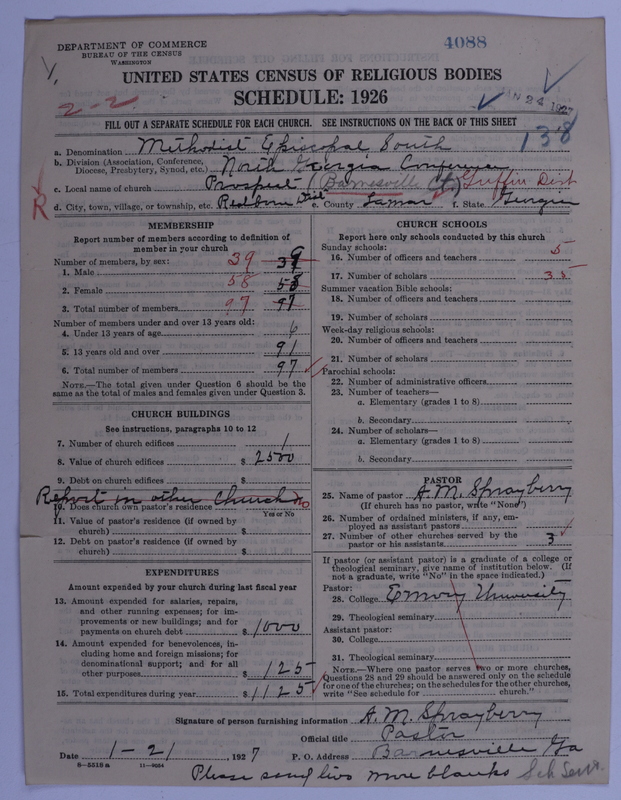 4088
DEPARTMENT OF COMMERCE
BUREAU OF THE CENSUS
WASHINGTON
UNITED STATES CENSUS OF RELIGIOUS BODIES
SCHEDULE: 1926
2-2
JAN 24 1927
138
FILL OUT A SEPARATE SCHEDULE FOR EACH CHURCH. SEE INSTRUCTIONS ON THE BACK OF THIS SHEET
a. Denomination Methodist Episcopal South
b. Division (Association, Conference, Diocese, Presbytery, Synod, etc.) North Georgia Conference
c. Local name of church Prospect (Barnesville Ct.) Griffin Dist
d. City, town, village, or township, etc. Redbone Dist e. County Lamar f. State Georgia
R
MEMBERSHIP
Report number of members according to definition of
member in your church
Number of members, by sex:
1. Male 39 39
2. Female 58 58
3. Total number of members 97 97
Number of members under and over 13 years old:
4. Under 13 years of age 6
5. 13 years old and over 91
6. Total number of members 97
NOTE.—The total given under Question 6 should be the
same as the total of males and females given under Question 3.
CHURCH BUILDINGS
See instructions, paragraphs 10 to 12
7. Number of church edifices 1
8. Value of church edifices $ 2500
9. Debt on church edifices $
Report in other Church
10. Does church own pastor's residence No
Yes or No
11. Value of pastor's residence (if owned by
church) $
12. Debt on pastor's residence (if owned by
church) $
EXPENDITURES
Amount expended by your church during last fiscal year
13. Amount expended for salaries, repairs,
and other running expenses; for im-
provements or new buildings; and for
payments on church debt $ 1000
14. Amount expended for benevolences, in-
cluding home and foreign missions; for
denominational support; and for all
other purposes $ 125
15. Total expenditures during year $ 1125
CHURCH SCHOOLS
Report here only schools conducted by this church
Sunday schools:
16. Number of officers and teachers 5
17. Number of scholars 35
Summer vacation Bible schools:
18. Number of officers and teachers
19. Number of scholars
Week-day religious schools:
20. Number of officers and teachers
21. Number of scholars
Parochial schools:
22. Number of administrative officers
23. Number of teachers—
a. Elementary (grades 1 to 8)
b. Secondary
24. Number of scholars—
a. Elementary (grades 1 to 8)
b. Secondary
PASTOR
25. Name of pastor A. M. Sprayberry
(If church has no pastor, write "None")
26. Number of ordained ministers, if any, em-
ployed as assistant pastors
27. Number of other churches served by the
pastor or his assistants 3
If pastor (or assistant pastor) is a graduate of a college or
theological seminary, give name of institution below. (If
not a graduate, write "No" in the space indicated.)
Pastor:
28. College Emory University
29. Theological seminary
Assistant pastor:
30. College
31. Theological seminary
NOTE.—Where one pastor serves two or more churches,
Questions 28 and 29 should be answered only on the schedule
for one of the churches; on the schedules for the other churches,
write "See schedule for church."
Signature of person furnishing information A. M. Sprayberry
Official title Pastor
Date 1-21, 1927 P. O. Address Barnesville Ga
8-5518a 11-9054
Please send five more blanks Sch Sent.